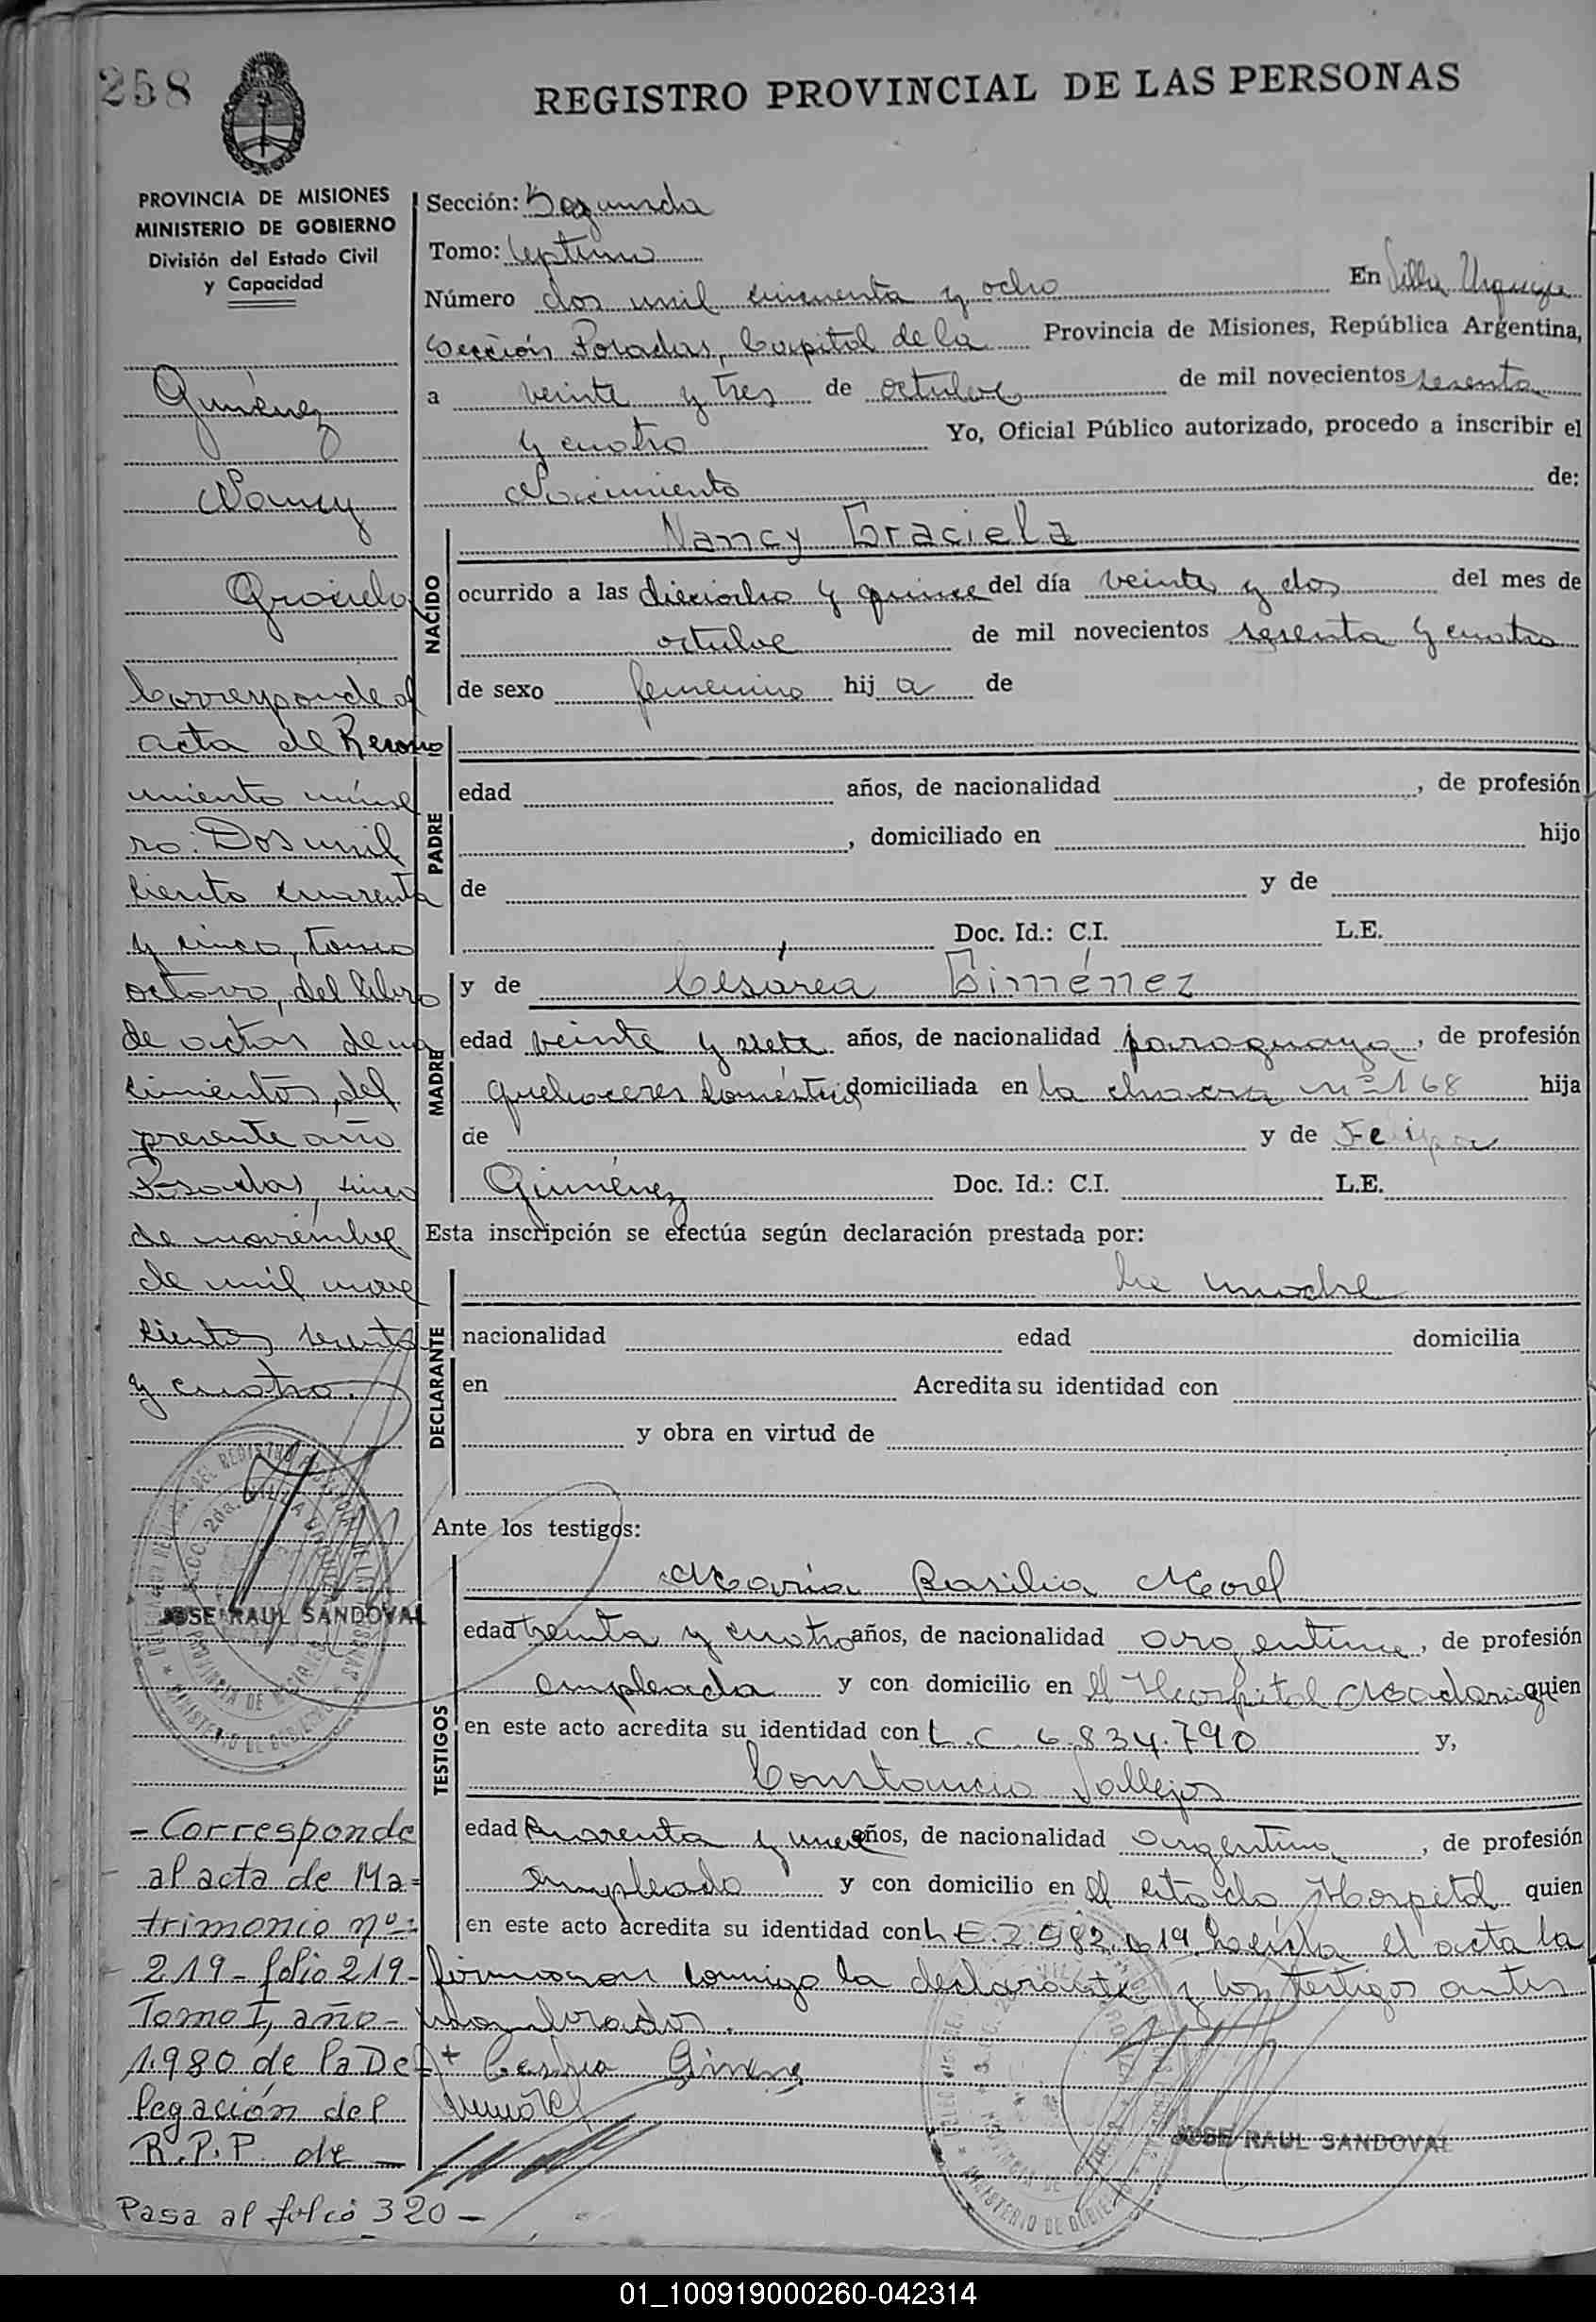 258
REGISTRO PROVINCIAL DE LAS PERSONAS
PROVINCIA DE MISIONES
MINISTERIO DE GOBIERNO
División del Estado Civil
y Capacidad
Giménez
Nancy
Graciela
Corresponde al
acta de Recono
cimiento núme
ro: Dos mil
ciento cuarenta
y cinco, tomo
octavo, del libro
de actas de na
cimientos, del
presente año
Posadas, cinco
de noviembre
de mil nove
cientos sesenta
y cuatro.
JOSE RAUL SANDOVAL
- Corresponde
al acta de Ma=
trimonio nº:
219 - folio 219 -
Tomo I, año -
1.980 de la De
legación del
R.P.P. de —
Pasa al folio 320 —
Sección: Segunda
Tomo: septimo
Número dos mil cincuenta y ocho En Villa Urquiza
Sección Posadas, Capital de la Provincia de Misiones, República Argentina,
a veinte y tres de octubre de mil novecientos sesenta
y cuatro Yo, Oficial Público autorizado, procedo a inscribir el
Nacimiento de:
NACIDO
Nancy Graciela
ocurrido a las dieciocho y quince del día veinte y dos del mes de
octubre de mil novecientos sesenta y cuatro
de sexo femenino hij a de
PADRE
edad años, de nacionalidad , de profesión
, domiciliado en hijo
de y de
Doc. Id.: C.I. L.E.
MADRE
y de Cesárea Giménez
edad veinte y siete años, de nacionalidad paraguaya, de profesión
quehaceres domésticos domiciliada en la chacra nº 168 hija
de y de Felipa
Giménez Doc. Id.: C.I. L.E.
Esta inscripción se efectúa según declaración prestada por:
DECLARANTE
la madre
nacionalidad edad domicilia
en Acredita su identidad con
y obra en virtud de
Ante los testigos:
TESTIGOS
María Basilia Morel
edad treinta y cuatro años, de nacionalidad argentina, de profesión
empleada y con domicilio en el Hospital Madariaga quien
en este acto acredita su identidad con L.C. 6.834.790 y,
Constancio Vallejos
edad cuarenta y nueve años, de nacionalidad argentina, de profesión
empleado y con domicilio en el citado Hospital quien
en este acto acredita su identidad con L.E. Leída el acta la
firmaron conmigo la declarante y los testigos antes
nombrados.
JOSE RAUL SANDOVAL
01_100919000260-042314